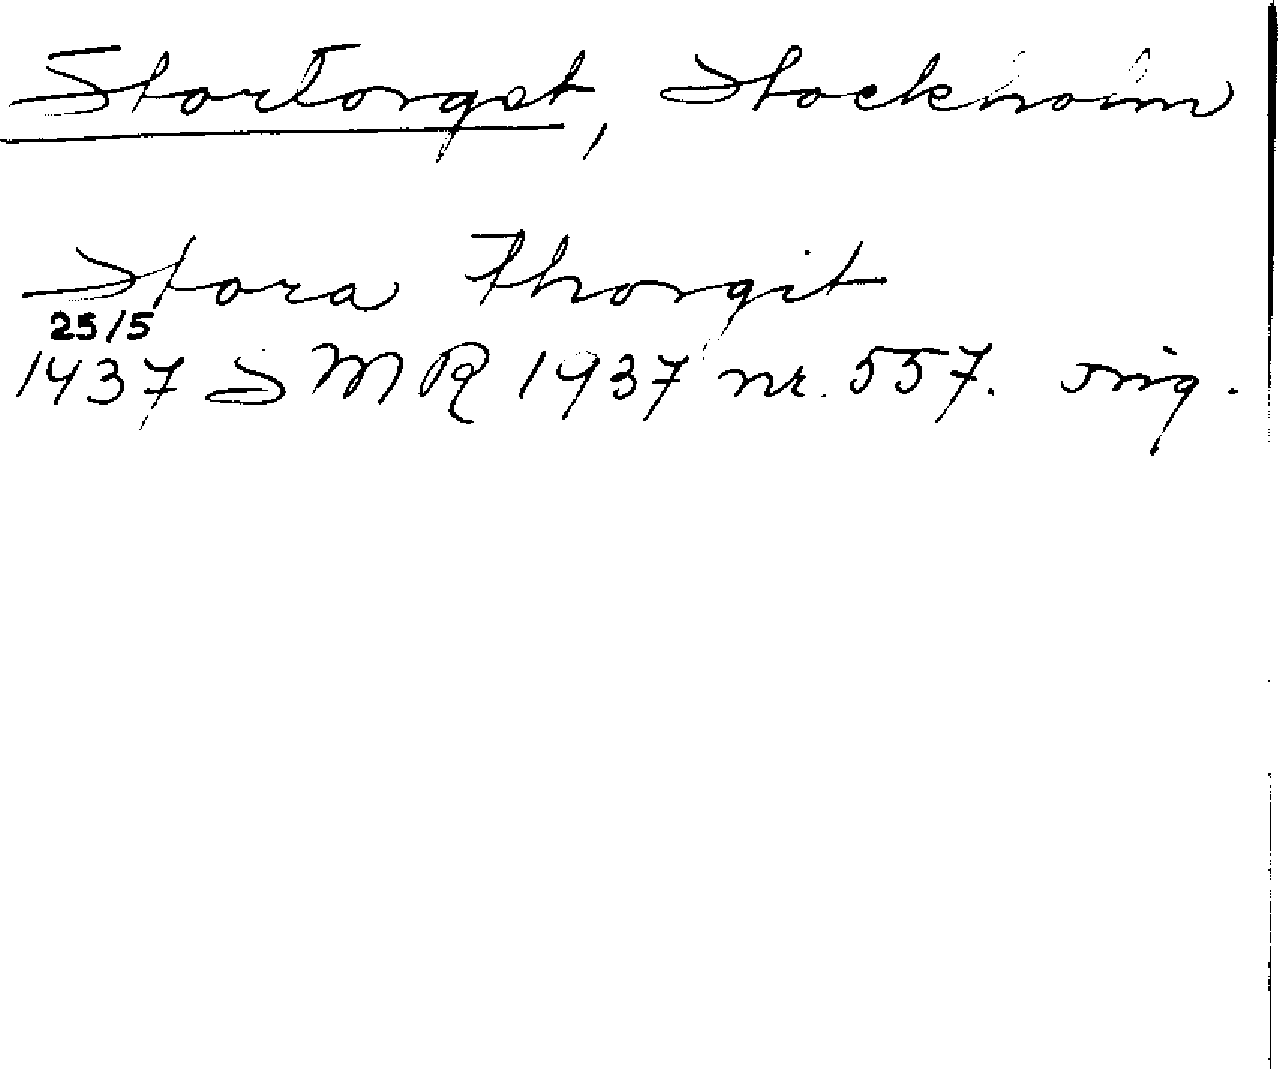 Stortorget, Stockholm
Stora Thorgit
25/5
1437 SMR 1937 nr. 557. orig.